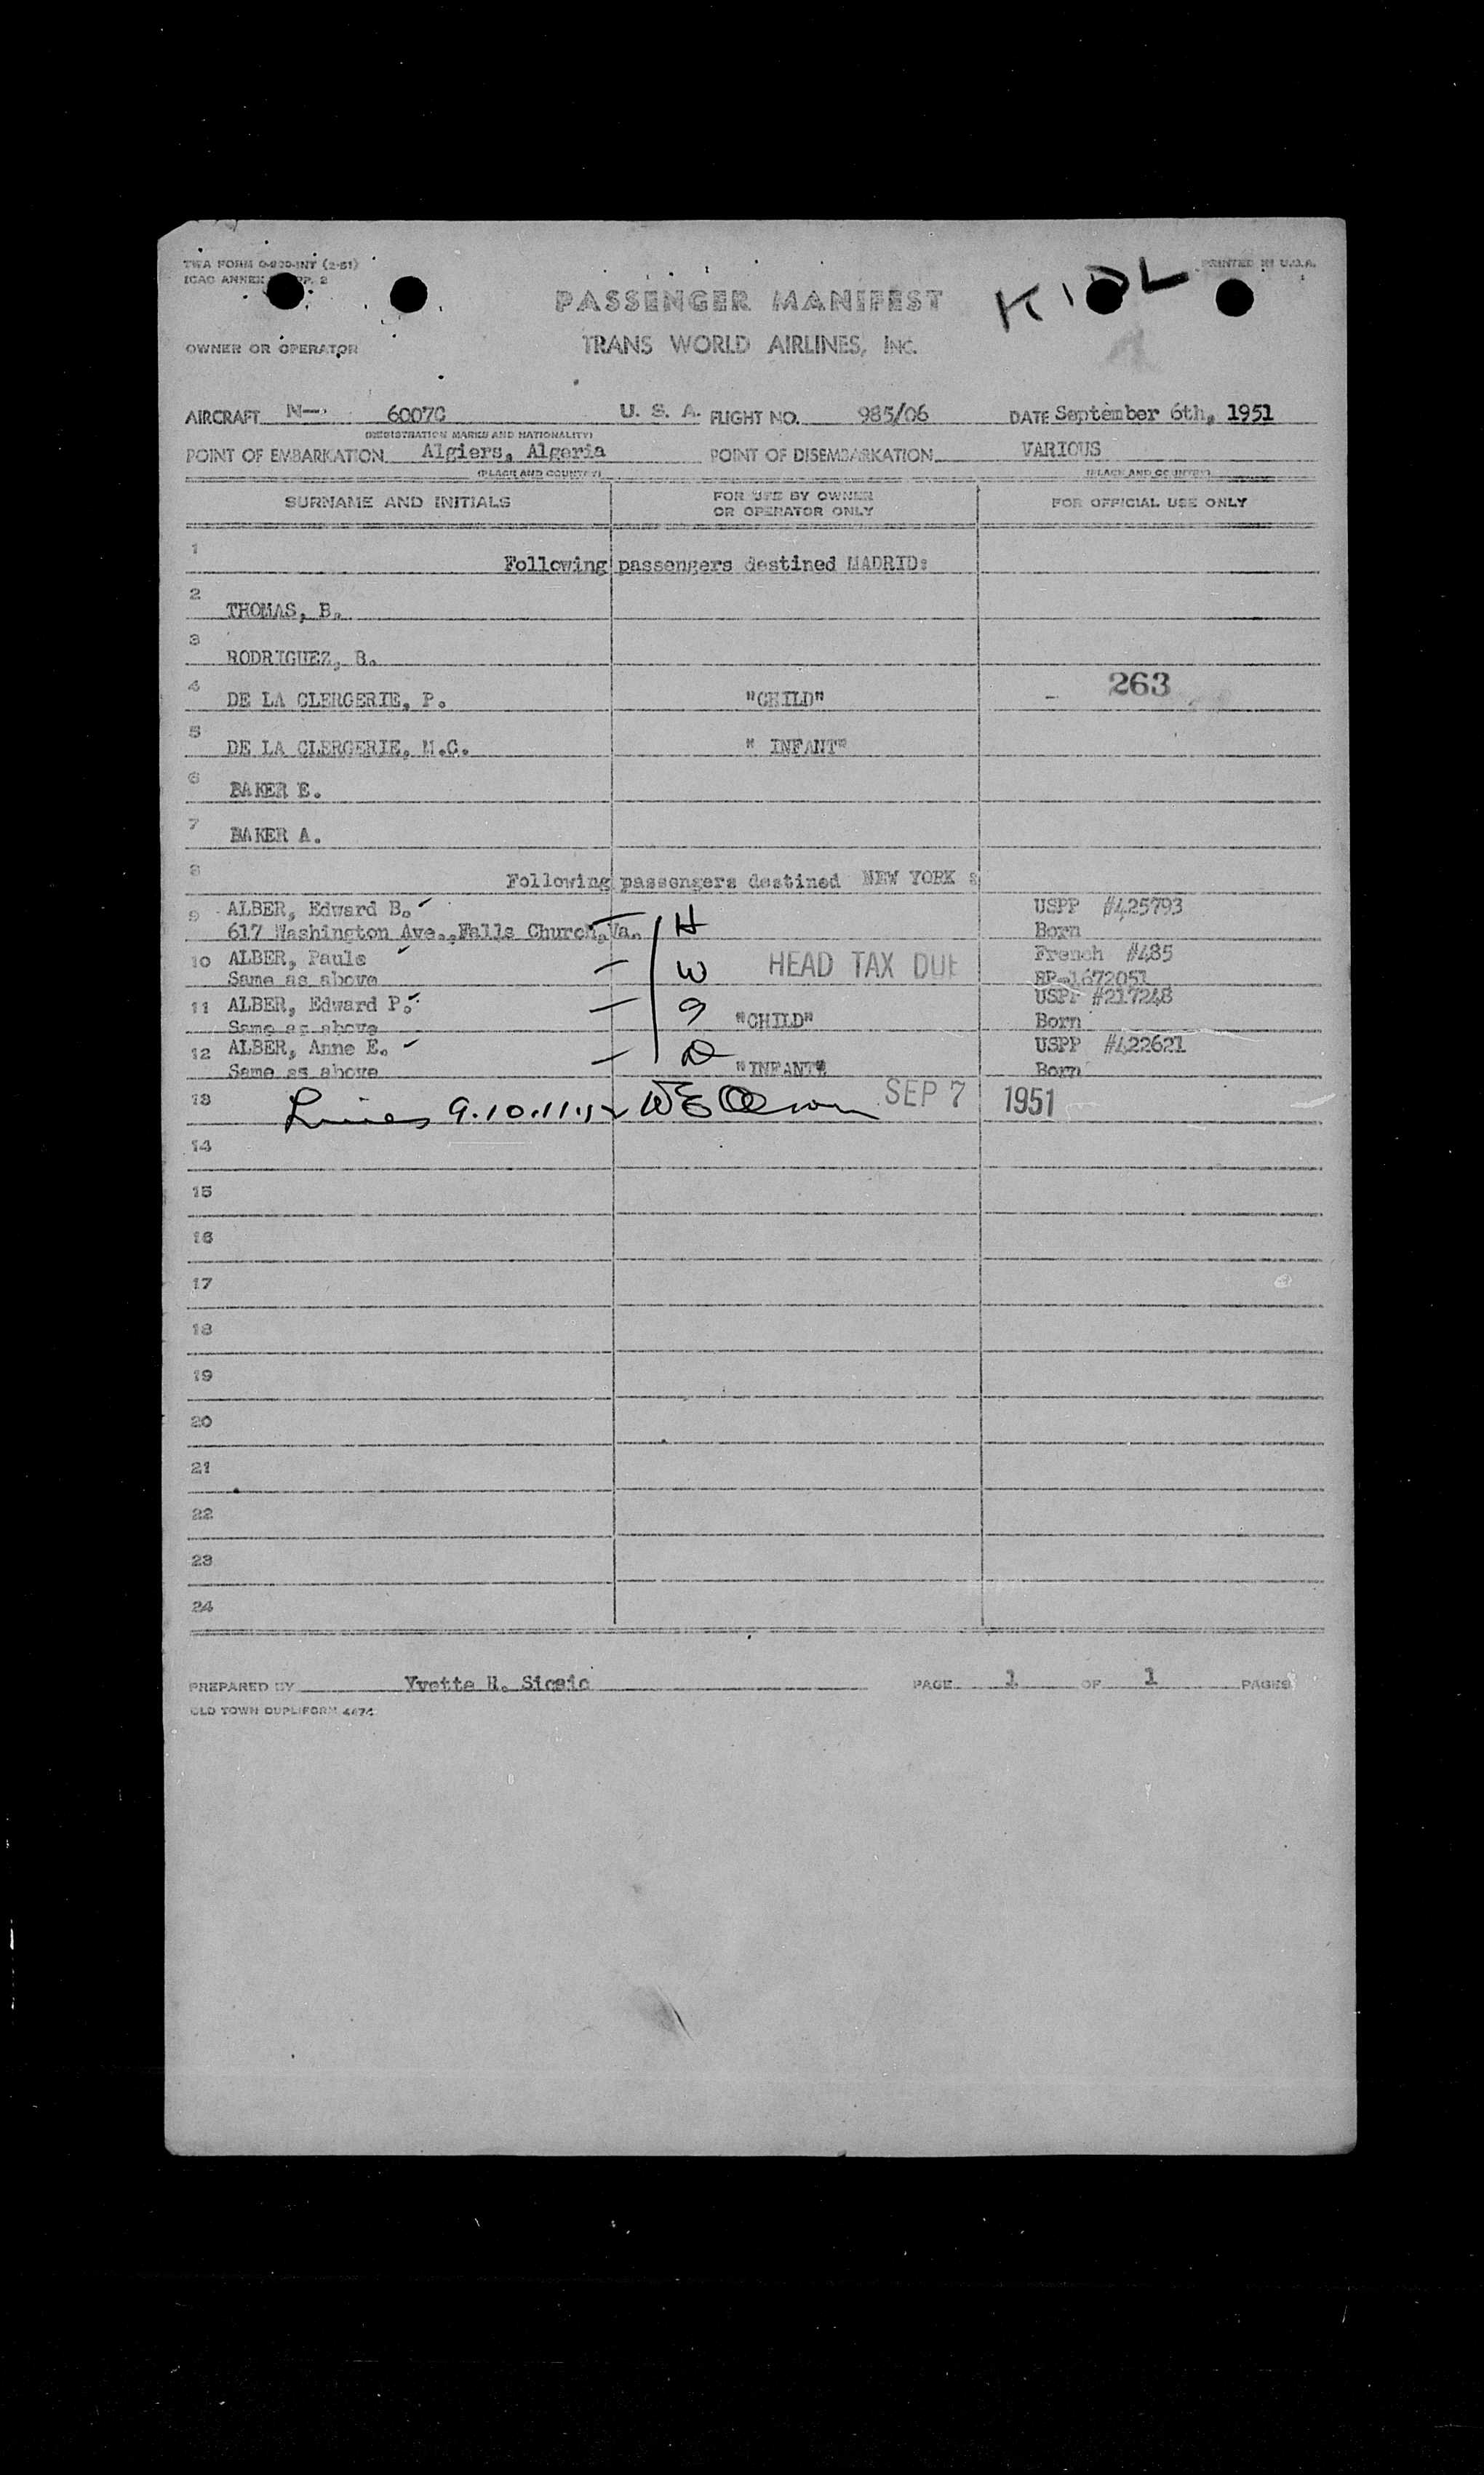 TWA FORM O-820-INT (2-51)
ICAO ANNEX PP. 2
PRINTED IN U.S.A.
KIDL
PASSENGER MANIFEST
TRANS WORLD AIRLINES, INC.
OWNER OR OPERATOR
AIRCRAFT N- 6007C U. S. A. FLIGHT NO. 985/06 DATE September 6th, 1951
(REGISTRATION MARKS AND NATIONALITY)
POINT OF EMBARKATION Algiers, Algeria POINT OF DISEMBARKATION VARIOUS
(PLACE AND COUNTRY) (PLACE AND COUNTRY)
SURNAME AND INITIALS FOR USE BY OWNER OR OPERATOR ONLY FOR OFFICIAL USE ONLY
1 Following passengers destined MADRID:
2 THOMAS, B.
3 RODRIGUEZ, R.
4 DE LA CLERGERIE, P. "CHILD" 263
5 DE LA CLERGERIE, M.C. " INFANT"
6 BAKER E.
7 BAKER A.
8 Following passengers destined NEW YORK :
9 ALBER, Edward B. USPP #425793
617 Washington Ave., Falls Church, Va. H Born
10 ALBER, Paule W HEAD TAX DUE French #485
Same as above RP-1672051
11 ALBER, Edward P. S USPP #217248
Same as above "CHILD" Born
12 ALBER, Anne E. D USPP #422621
Same as above "INFANT" Born
13 Lines 9.10.11.12 SEP 7 1951
14
15
16
17
18
19
20
21
22
23
24
PREPARED BY Yvette PAGE 1 OF 1 PAGES
OLD TOWN DUPLIFORM 4474